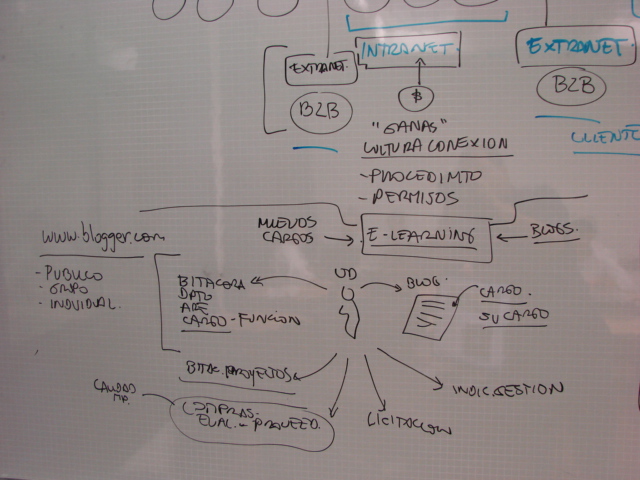 EXTRANET.
INTRANET.
EXTRANET
B2B
$
B2B
"GANAS"
CULTURA CONEXION
CLIENTE
-PROCEDIMTO
-PERMISOS
www.blogger.com
NUEVOS
CARGOS
E-LEARNING
BLOGS.
-PUBLICO
-GRUPO
-INDIVIDUAL.
BITACORA
DPTO
UD
BLOG.
CARGO-FUNCION
CARGO.
SU CARGO
BITAC. PROYECTOS
INDIC. GESTION
CALIDAD
COMPRAS-
EVAL - PROVEED.
LICITACION